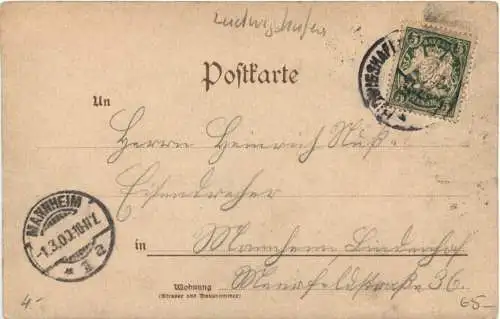 Ludwigshafen
Postkarte
An
Herrn Heinrich Nuß
Eisendreher
in Mannheim Lindenhof
Wohnung
(Strasse und Hausnummer)
Meerfeldstraße 36.
MANNHEIM
-1.3.00.10-11V.
4.-
65-